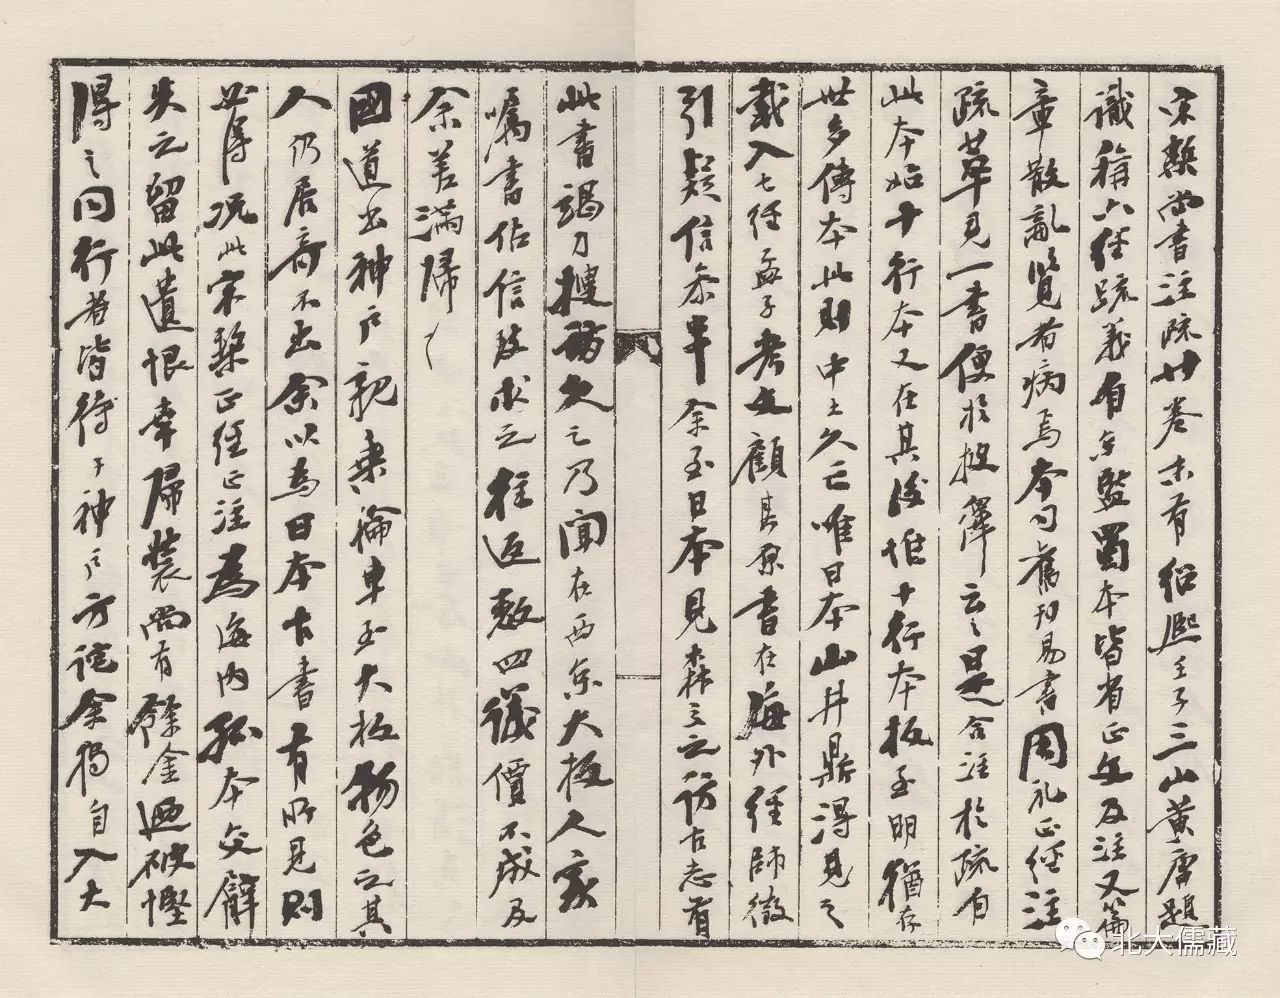 宋槧尚書注疏廿卷末有紹熙壬子三山黃唐題
識稱六經疏義自京監蜀本皆省正文及注又篇
章散亂覽者病焉本司舊刊易書周礼正經注
疏萃見一書便於披繹云云是合注於疏自
此本始十行本又在其後惟十行本板至明猶存
世多傳本此則中土久亡唯日本山井鼎得見之
載入七經孟子考文顧其原書在海外經師徵
引疑信參半余至日本見森立之訪古志有
此書竭力搜訪久之乃聞在西京大板人家
囑書估信致求之往返數四議價不成及
余差滿歸
國道出神戶親乘輪車至大板物色之其
人仍居奇不出余以為日本古書有所見則
必得況此宋槧正經正注為海內孤本交臂
失之留此遺恨幸歸裝尚有餘金迺破慳
得之同行者皆待于神戶方詫余獨自入大
北大儒藏